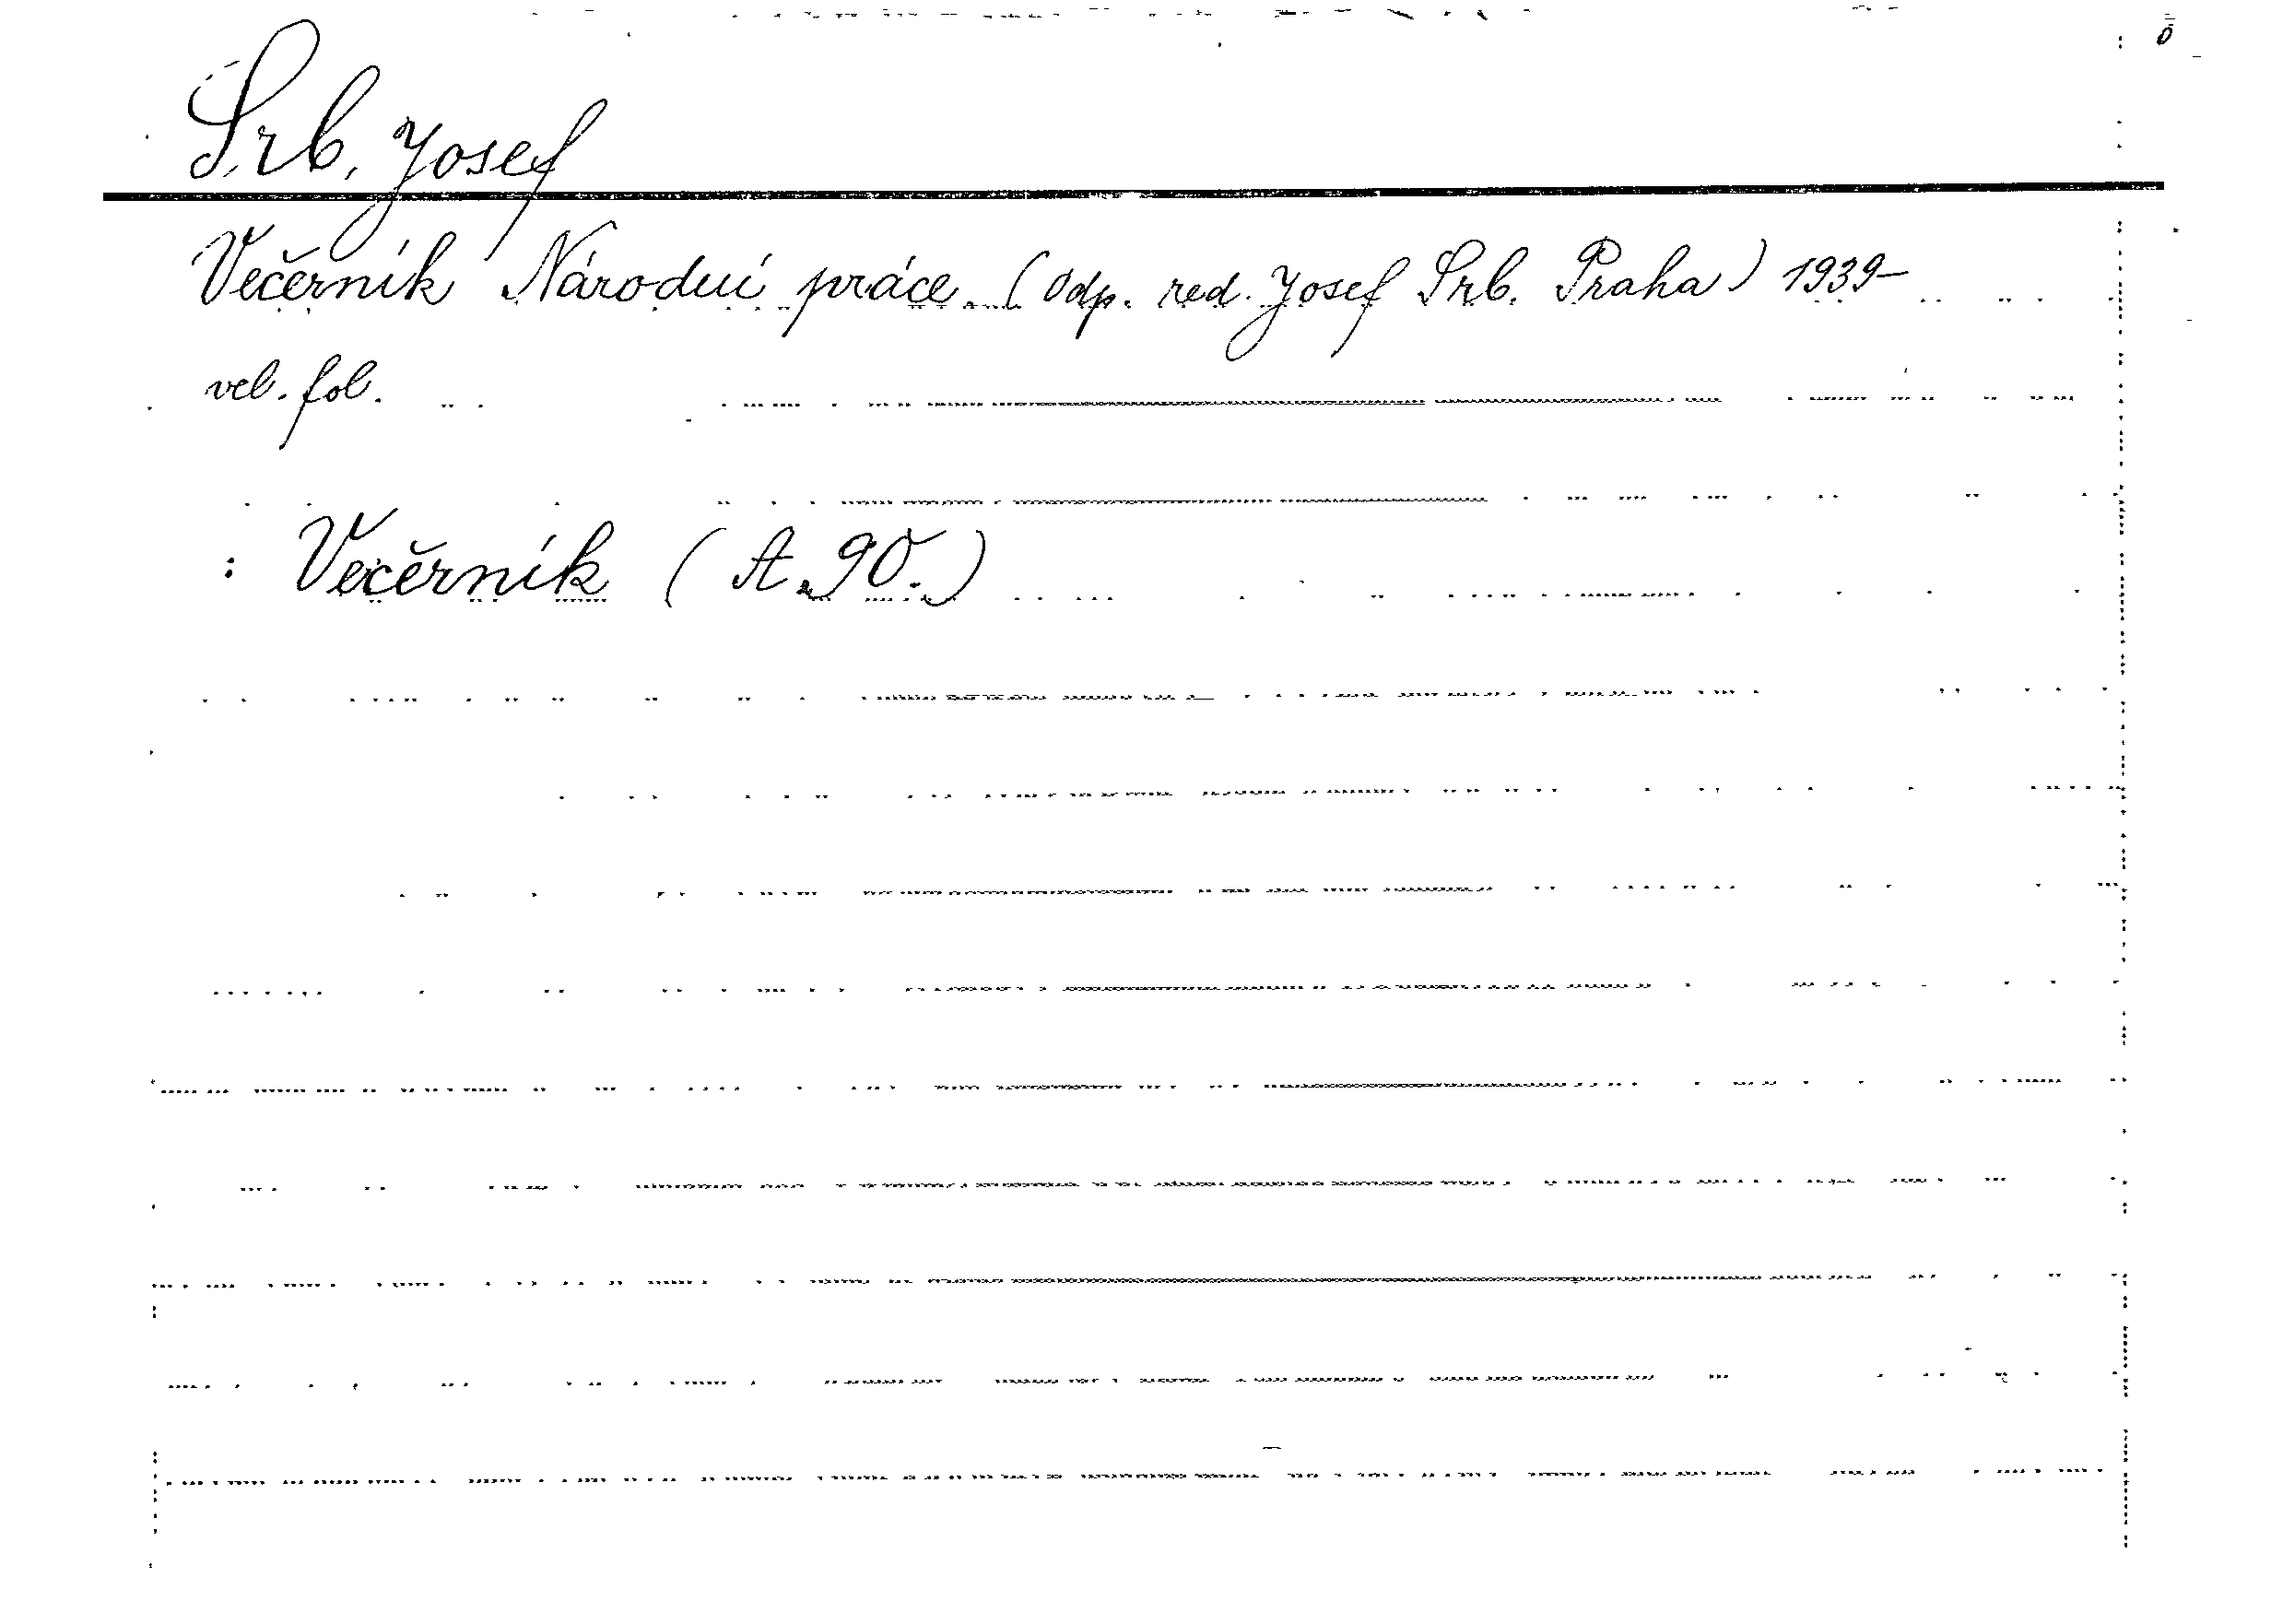 Srb, Josef
Večerník Národní práce. (Odp. red. Josef Srb. Praha) 1939-
vel. fol.
: Večerník (A. 90.)